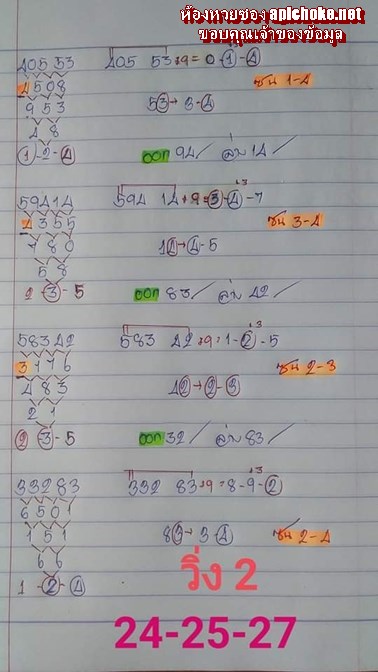 ห้องหวยซอง aplchoke.net
ขอบคุณเจ้าของข้อมูล
40533 405 53+9 = 0-1-4
4508 ชน 1-4
953 53→3-4
48
1-2-4 ออก 94/ ล่าง 14/
59414 594 14+9=3-4-7
4355 ชน 3-4
780 14→4-5
58
2-3-5 ออก 83/ ล่าง 42/
58342 583 42+9=1-2-5
3176 ชน 2-3
483 42→2-3
21
2-3-5 ออก 32/ ล่าง 83/
33283 332 83+9=8-9-2
6501
151 83→3-4 ชน 2-4
66
1-2-4 วิ่ง 2
24-25-27